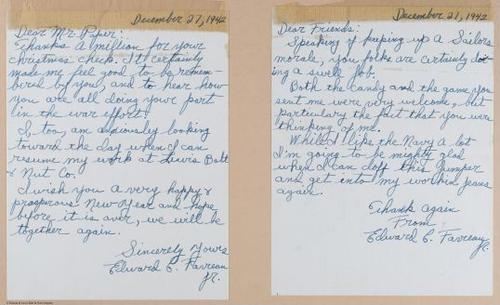 December 27, 1942
Dear Mr. Piper:
Thanks a million for your
christmas check. It certainly
made me feel good to be remem-
bered by you, and to hear how
you are all doing your part
in the war effort.
I, too, am anxiously looking
toward the day when I can
resume my work at Lewis Bolt
& Nut Co.
I wish you a very happy &
prosperous New Year and hope
before it is over, we will be
together again.
Sincerely Yours
Edward C. Favreau
Jr.
December 21, 1942
Dear Friends:
Speaking of keeping up a Sailors
morale, you folks are certainly do-
ing a swell job.
Both the Candy and the game you
sent me were very welcome, but
particularly the fact that you were
thinking of me.
While I like the Navy a lot
I'm going to be mighty glad
when I can doff this jumper
and get into my working jeans
again.
Thanks again
From
Edward C. Favreau
Jr.